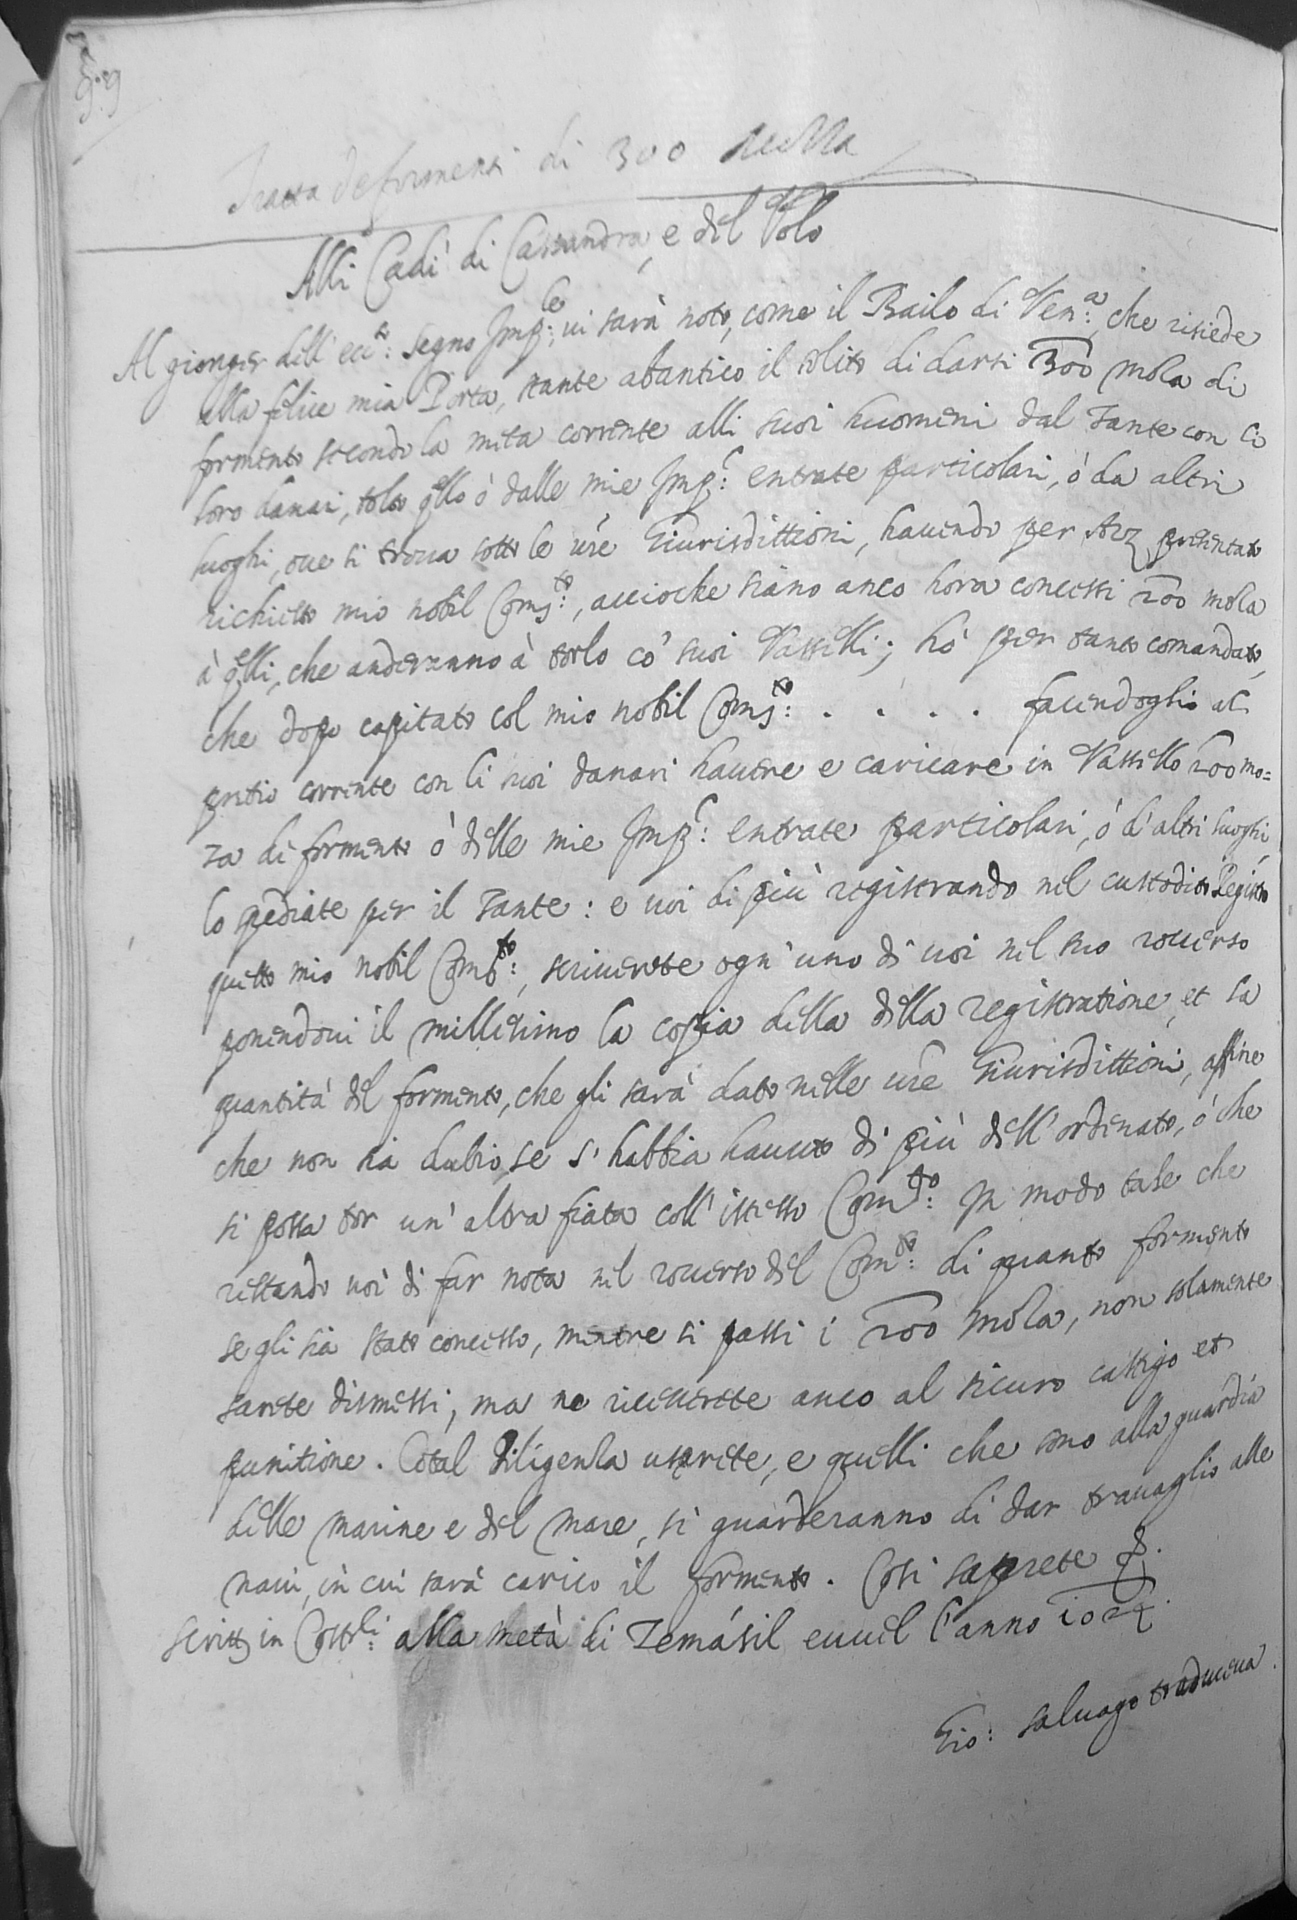 Tratta de formenti di 300 Mozza
Alli Cadì di Cassandra, e del Volo
Al gionger dell'ecc.so: segno Imp:le, vi sarà noto, come il Bailo di Ven:a, che risiede
alla felice mia Porta, stante abantico il solito di darsi 300 moza di
formento secondo la meta corrente alli suoi huomeni dal Zante con li
loro danari, tolto qllo ò dalle mie Imp:li entrate particolari, ò da altri
luoghi, ove si trova sotto le vre Giurisdittioni, havendo per Arz presentato
richiesto mio nobil Com:to, acciocke siano anco hora concessi 200 moza
à qlli, che anderanno à torlo co' suoi Vasselli; hò per tanto comandato,
che dopo capitato col mio nobil Com:to . . . . facendoglio al
pretio corrente con li suoi danari havere e caricare in Vassello 200 mo=
za di formento ò delle mie Imp:li entrate particolari, ò d'altri luoghi,
lo spediate per il Zante: e voi di più registrando nel custodito Registro
questo mio nobil Com:to, scriverete ogn'uno di voi nel suo roverso
ponendovi il millesimo la copia della della registratione, et la
quantità del formento, che gli sarà dato nelle vre Giurisdittioni, affine
che non sia dubio, se s'habbia havuto di più dell'ordinato, ò che
si possa tor un'altra fiata coll'istesso Com:to In modo tale che
restando voi di far nota nel roverso del Com:to di quanto formento
se gli sia stato concesso, mentre si passi i 200 moza, non solamente
sarete dismessi, ma ne riceverete anco al sicuro castigo et
punitione. Cotal diligenza usarete, e quelli che sono alla guardia
delle marine e del mare, si guarderanno di dar travaglio alle
navi, in cui sarà carico il formento. Così saprete &.
Scritto in Costli: alla metà di Zemásil euuel l'anno 1024.
Gio: Salvago traduceva.